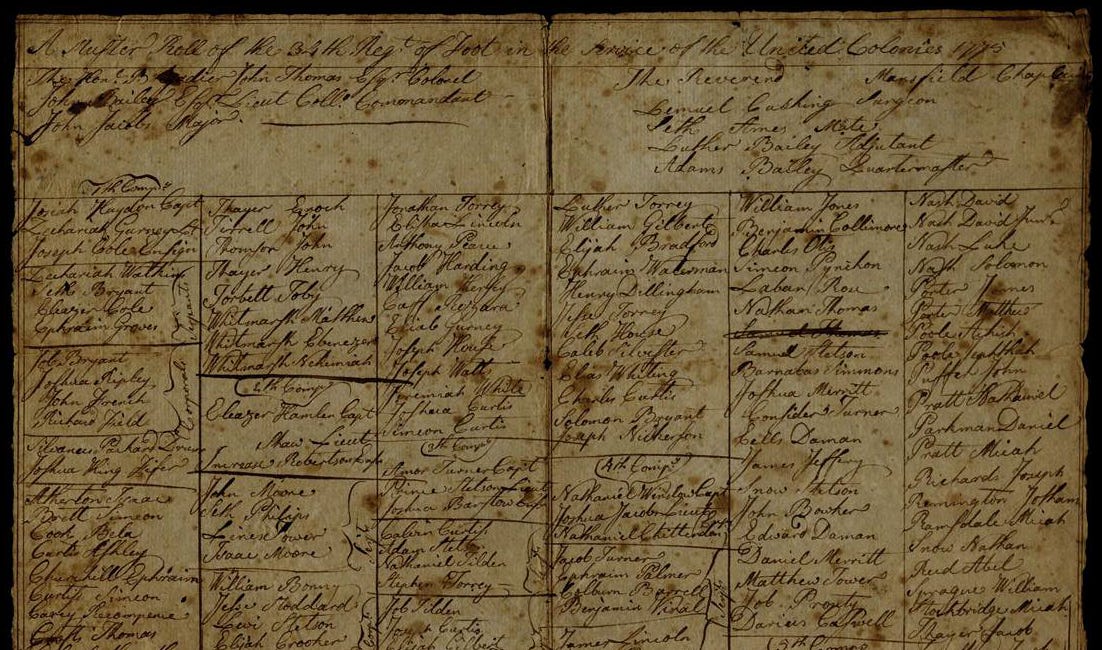 A Muster Roll of the 34th Regt of Foot in the Service of the United Colonies 1775
The Honl Brigadier John Thomas Esqr Colonel
John Bailey Esqr Lieut Coll. Commandant
John Jacobs Major
The Reverend Mansfield Chaplain
Lemuel Cushing Surgeon
Seth Ames Mate
Luther Bailey Adjutant
Adams Bailey Quartermaster
1th Compy
Josiah Haydon Capt
Zechariah Gurney Lt
Joseph Cole Ensign
Zechariah Watkins
Seth Bryant
Eleazer Cole
Ephraim Groves
Serjeants
Job Bryant
Joshua Ripley
John French
Richard Field
Corporals
Silvanus Packard Drum
Joshua King Fifer
Atherton Isaac
Brett Simeon
Cook Bela
Curtis Ashley
Churchill Ephraim
Curtis Simeon
Carey Recompence
Thomas
Thayer Enoch
Tirrell John
Thomson John
Thayer Henry
Torbett Toby
Whitmarsh Matthew
Whitmarsh Ebenezer
Whitmarsh Nehemiah
2th Compy
Eleazer Hamlen Capt
Shaw Lieut
Increase Robertson Ens
John Moore
Seth Philips
Tower
Isaac Moore
Sejt
William Bonny
Jesse Stoddard
Levi Stetson
Elijah Crooker
Jonathan Torrey
Elisha Lincoln
Anthony Pearce
Jacob Harding
William Hersey
Caff
Eliab Gurney
Joseph House
Joseph Watt
Jeremiah White
Joshua Curtis
Simeon Curtis
3th Compy
Amos Turner Capt
Prince Stetson Lieut
Joshua Barstow Ens
Calvin Curtis
Adam Stetson
Nathaniel Tilden
Stephen Torrey
Job Tilden
Joseph Curtis
Elijah Gilbert
Luther Torrey
William Gilbert
Elijah Bradford
Ephraim Waterman
Henry Dillingham
Jesse Torrey
Seth House
Caleb Silvester
Elias Whiting
Charles Curtis
Solomon Bryant
Joseph Nickerson
4th Compy
Nathaniel Winslow Capt
Joshua Jacobs Lieut
Nathaniel Chittenden Ens
Jacob Turner
Ephraim Palmer
Colburn Barrell
Benjamin Vinal
Sejt
James Lincoln
William Jones
Benjamin Collimore
Charles Otis
Simeon Pynchon
Laban Rou
Nathan Thomas
Samuel Stetson
Barnabas Simmons
Joshua Merritt
Consider Turner
Eells Daman
James Jeffery
Snow Stetson
John Bowker
Edward Daman
Daniel Merritt
Matthew Tower
Job Prouty
Darius Caswell
5th Compy
Nash David
Nash David Junr
Nash Luke
Nash Solomon
Porter James
Porter Matthew
Poole Achish
Poole Jephthah
Puffer John
Pratt Nathaniel
Parkman Daniel
Pratt Micah
Richards Joseph
Remington Jotham
Ramsdale Micah
Snow Nathan
Reed Abel
Sprague William
Stockbridge Micah
Thayer Jacob